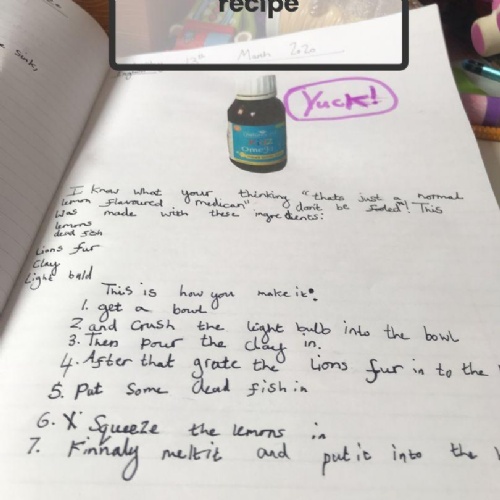 recipe
March 2020
Yuck!
Omega
I know what your thinking "thats just a normal
lemon flavoured medican" don't be foled! This
was made with these ingredents:
lemons
dead fish
Lions fur
Clay
light bald
This is how you make it:
1. get a bowl
2. and crush the light bulb into the bowl
3. Then pour the clay in.
4. After that grate the lions fur in to the
5. Put some dead fish in
6. X Squeeze the lemons in
7. Finnaly melt it and put it into the